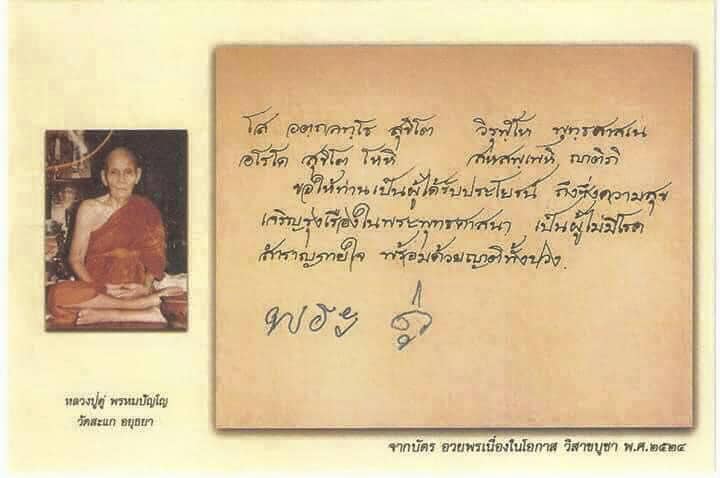 โส อตฺถลทฺโธ สุขิโต วิรุฬฺโห พุทฺธสาสเน
อโรโค สุขิโต โหหิ สหสพฺเพหิ ญาติภิ
ขอให้ท่านเป็นผู้ได้รับประโยชน์ ถึงซึ่งความสุข
เจริญรุ่งเรืองในพระพุทธศาสนา เป็นผู้ไม่มีโรค
สำราญกายใจ พร้อมด้วยญาติทั้งปวง.
หลวงปู่ดู่ พรหมปัญโญ
วัดสะแก อยุธยา
จากบัตร อวยพรเนื่องในโอกาส วิสาขบูชา พ.ศ.๒๕๒๔